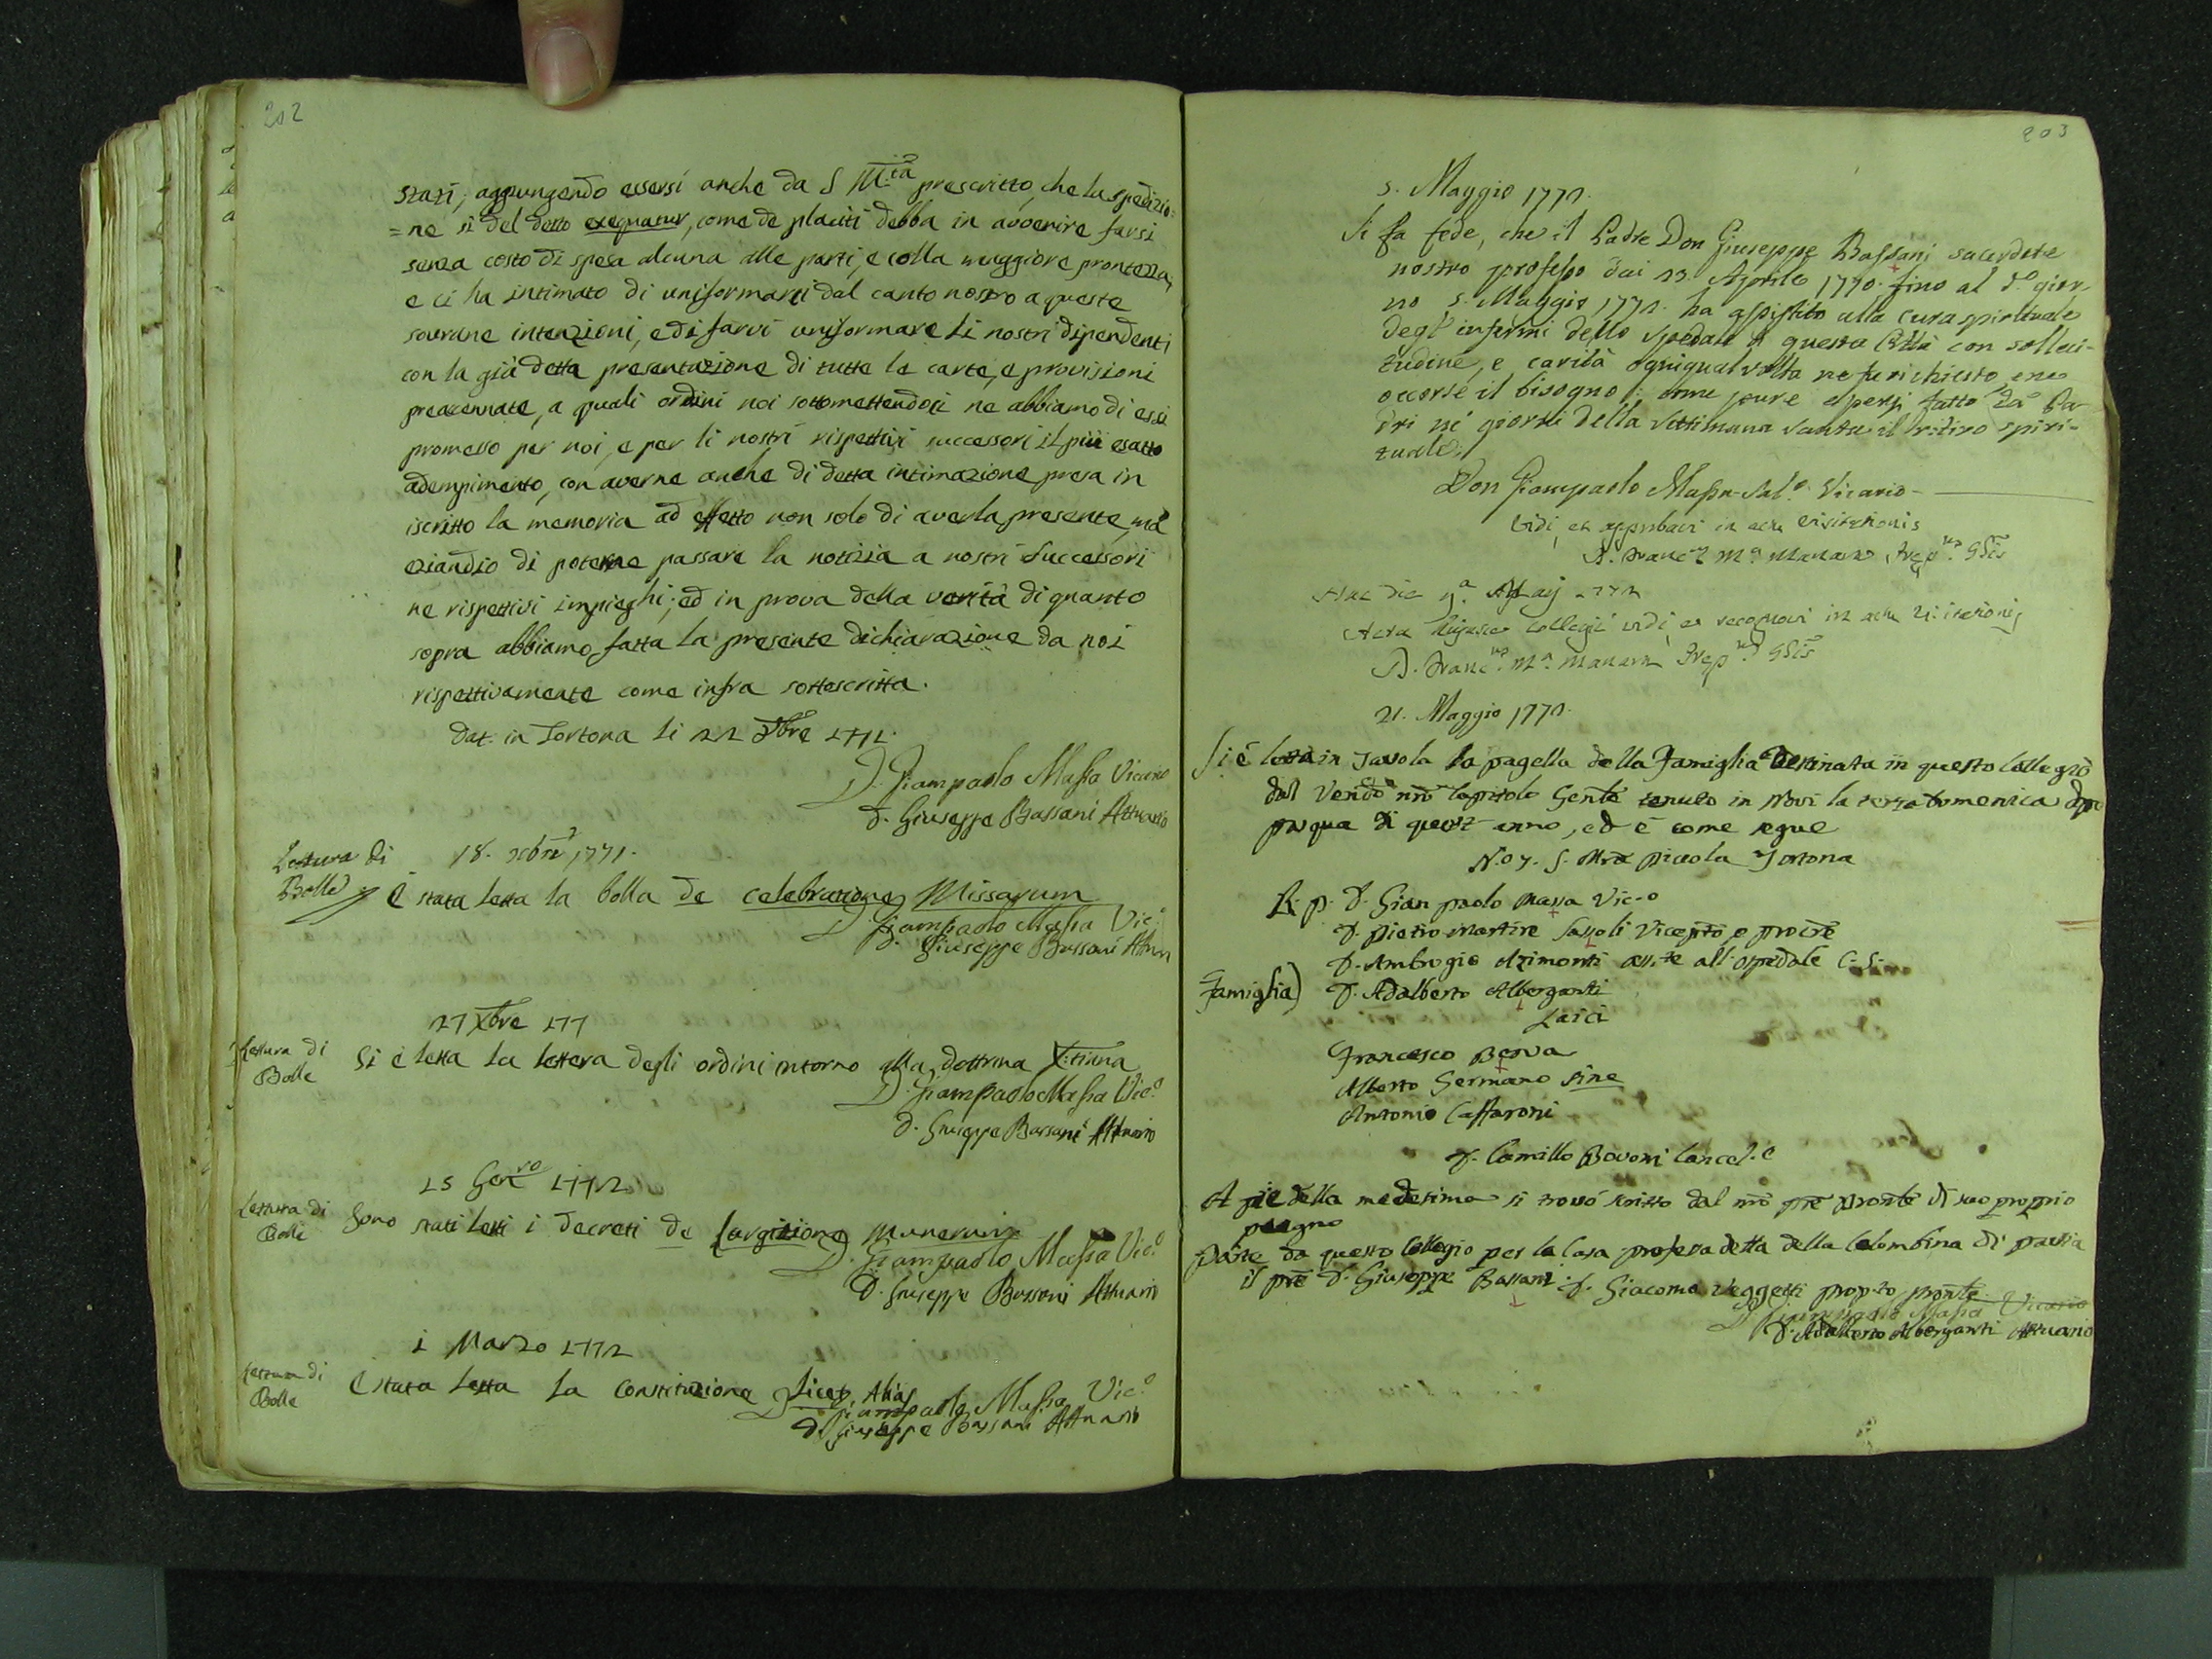 202
stati; aggiungendo essersi anche da S M.tà prescritto, che la spedizio=
=ne si del detto exequatur, come de placiti debba in avvenire farsi
senza costo di spesa alcuna alle parti, e colla maggiore prontezza,
e ci ha intimato di uniformarci dal canto nostro a queste
sovrane intenzioni, e di farvi uniformare li nostri dipendenti
con la già detta presentazione di tutte le carte, e provisioni
preaccennate, a quali ordini noi sottomettendoci ne abbiamo di essi
promesso per noi, e per li nostri rispettivi successori il più esatto
adempimento, con averne anche di detta intimazione presa in
iscritto la memoria ad effetto non solo di averla presente, ma
eziandio di poterne passare la notizia a nostri successori
ne rispettivi impieghi; ed in prova della verità di quanto
sopra abbiamo fatta la presente dichiarazione da noi
rispettivamente come infra sottoscritta.
Dat. in Tortona li
D. Giampaolo Massa Vicario
D. Giuseppe Bassani Attuario
Lettura di
Bolle
18. 1771.
È stata letta la bolla de celebratione Missarum
D. Giampaolo Massa Vic.o
D. Giuseppe Bassani Attua
27 Xbre 177
Lettura di
Bolle
Si è letta la lettera degli ordini intorno alla dottrina X.tiana
D. Giampaolo Massa Vic.o
D. Giuseppe Bassani Attuario
15 Gen.ro 1772
Lettura di
Bolle
Sono stati letti i decreti de largitione munerum
D. Giampaolo Massa Vic.o
D. Giuseppe Bassani Attuario
1 Marzo 1772
Lettura di
Bolle
È stata letta la Constituzione Licet Alias
D. Giampaolo Massa Vic.o
D. Giuseppe Bassani Attuario
203
5. Maggio 1772.
Si fa fede, che il Padre Don Giuseppe Bassani sacerdote
nostro professo dai 23. Aprile 1770. fino al d.o gior-
no 5. Maggio 1772. ha assistito alla cura spirituale
degl' infermi dello spedale di questa Città con solleci-
tudine, e carità ogniqualvolta ne fu richiesto, e ne
occorse il bisogno; come pure essersi fatto da Pa-
dri ne' giorni della Settimana Santa il ritiro spiri-
tuale.
Don Giampaolo Massa Vicario
Vidi, et approbavi in actu visitationis
D. Franc. M.a Manara Prep.
Hac die Maij 1772
Acta hujusce Collegii vidi, et recognovi in actu visitationis
D. Franc. M.a Manara Prep.
21. Maggio 1772.
Si è letta in tavola la pagella della Famiglia destinata in questo Collegio
dal Vendo nro Capitolo Gente tenuto in Novi la terza domenica dopo
pasqua di quest' anno, ed è come segue
N.o 7. S. Mra piccola Tortona
R. p. D. Gian paolo Massa Vic-o
D. Pietro Martire Sassoli e procre
D. Ambrogio Azimonti ass.te all' ospedale C. S.
Famiglia) D. Adalberto Alberganti
Laici
Francesco Berva
Alberto Germano sine
Antonio Caffaroni
D. Camillo Bovoni Cancel.e
A pie della medesima si trovò scritto dal nro pre pronte di suo proprio
pugno
Parte da questo Collegio per la Casa professa detta della Colombina di pavia
il pre D. Giuseppe Bassani. D. Giacomo Veggetti prop.to pronte
D. Giampaolo Massa Vicario
D. Adalberto Alberganti Attuario